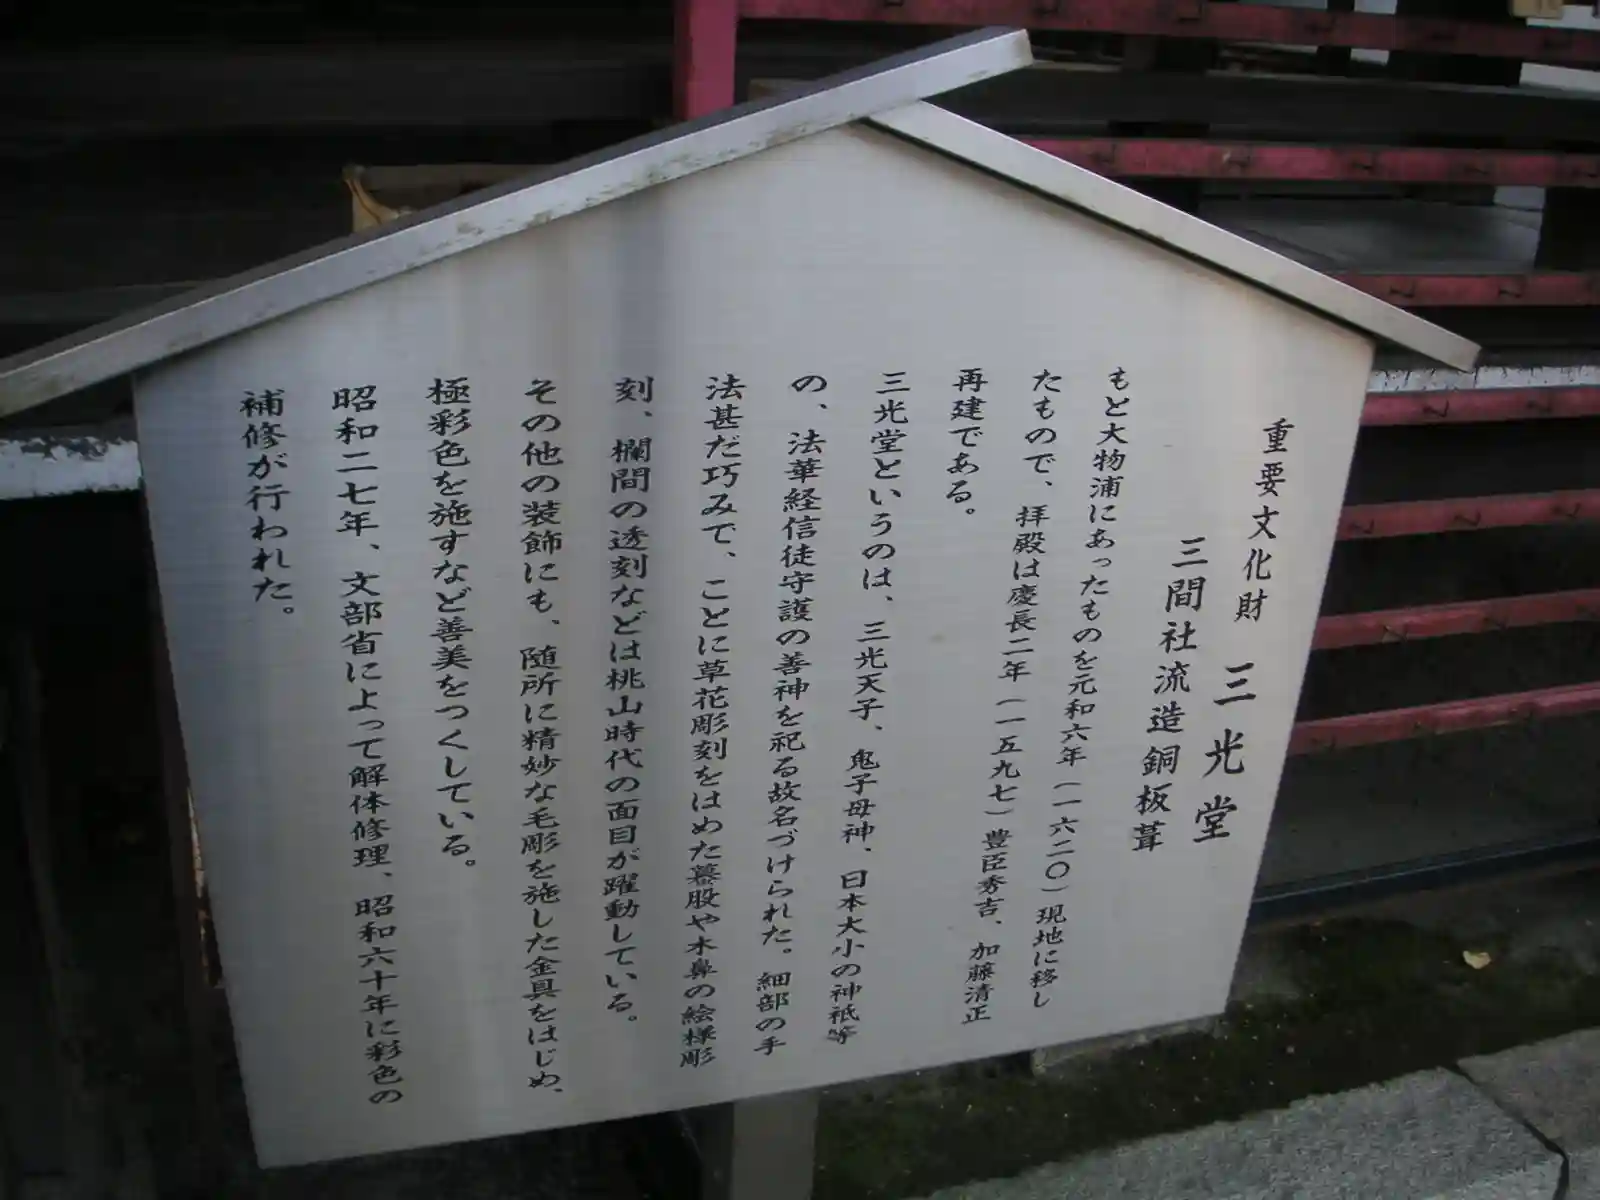 重要文化財 三光堂
三間社流造銅板葺
もと大物浦にあったものを元和六年(一六二〇)現地に移し
たもので、拝殿は慶長二年(一五九七)豊臣秀吉、加藤清正
再建である。
三光堂というのは、三光天子、鬼子母神、日本大小の神祇等
の、法華経信徒守護の善神を祀る故名づけられた。細部の手
法甚だ巧みで、ことに草花彫刻をはめた蟇股や木鼻の絵様彫
刻、欄間の透刻などは桃山時代の面目が躍動している。
その他の装飾にも、随所に精妙な毛彫を施した金具をはじめ、
極彩色を施すなど善美をつくしている。
昭和二七年、文部省によって解体修理、昭和六十年に彩色の
補修が行われた。